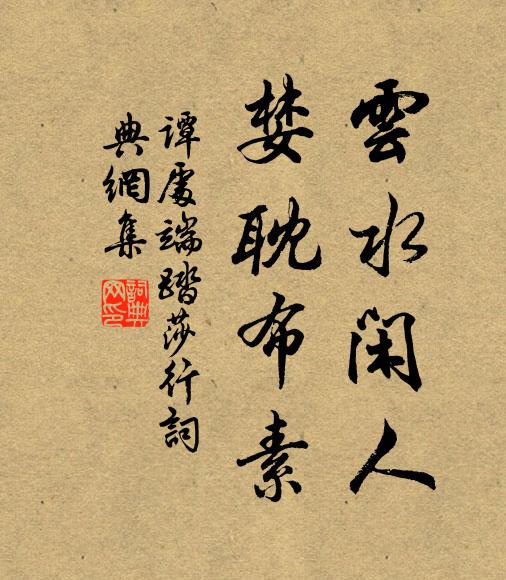 雲水閑人
婪耽布素
譚處端踏莎行詞
典網集
詞典網印